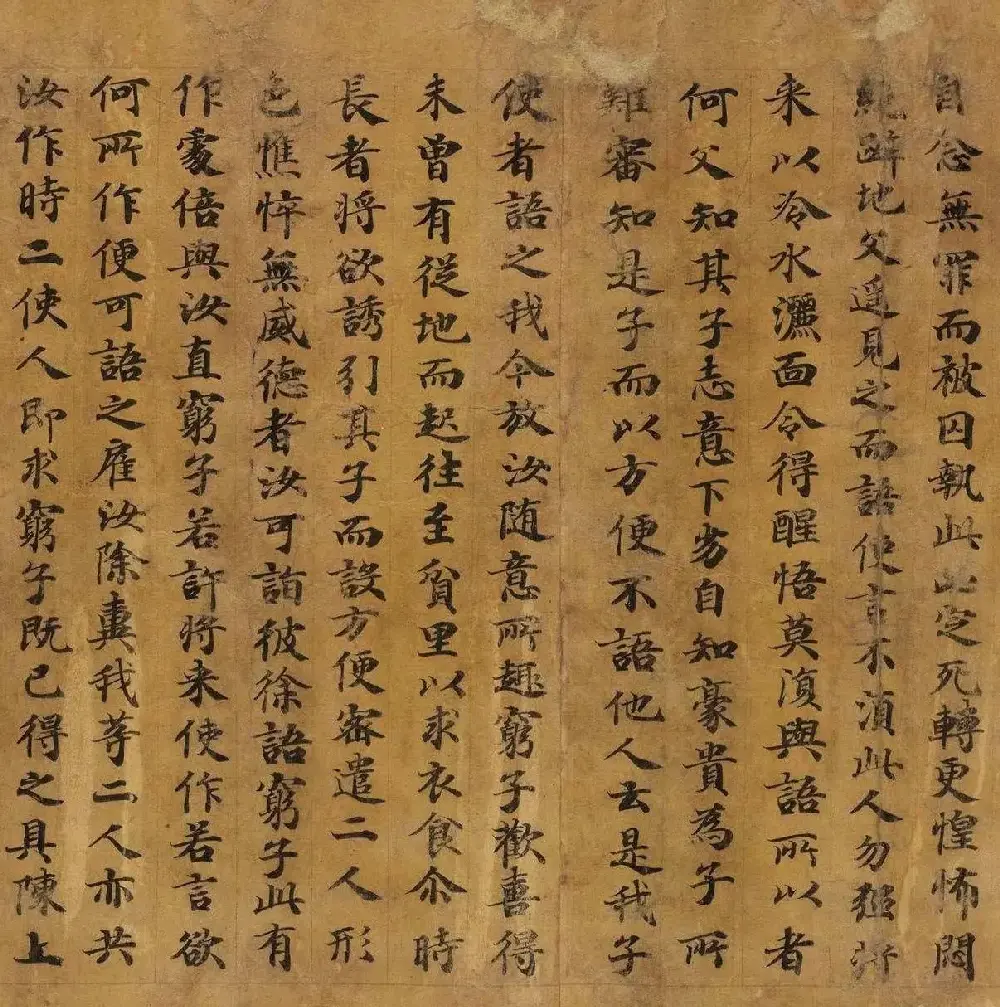 自念無罪而被囚執此必定死轉更惶怖悶
絕躃地父遥見之而語使言不湏此人勿強將
来以冷水灑面令得醒悟莫復與語所以者
何父知其子志意下劣自知豪貴為子所
難審知是子而以方便不語他人云是我子
使者語之我今放汝随意所趣窮子歡喜得
未曾有從地而起往至貧里以求衣食尒時
長者将欲誘引其子而設方便密遣二人形
色憔悴無威德者汝可詣彼徐語窮子此有
作處倍與汝直窮子若許将来使作若言欲
何所作便可語之雇汝除糞我等二人亦共
汝作時二使人即求窮子既已得之具陳上